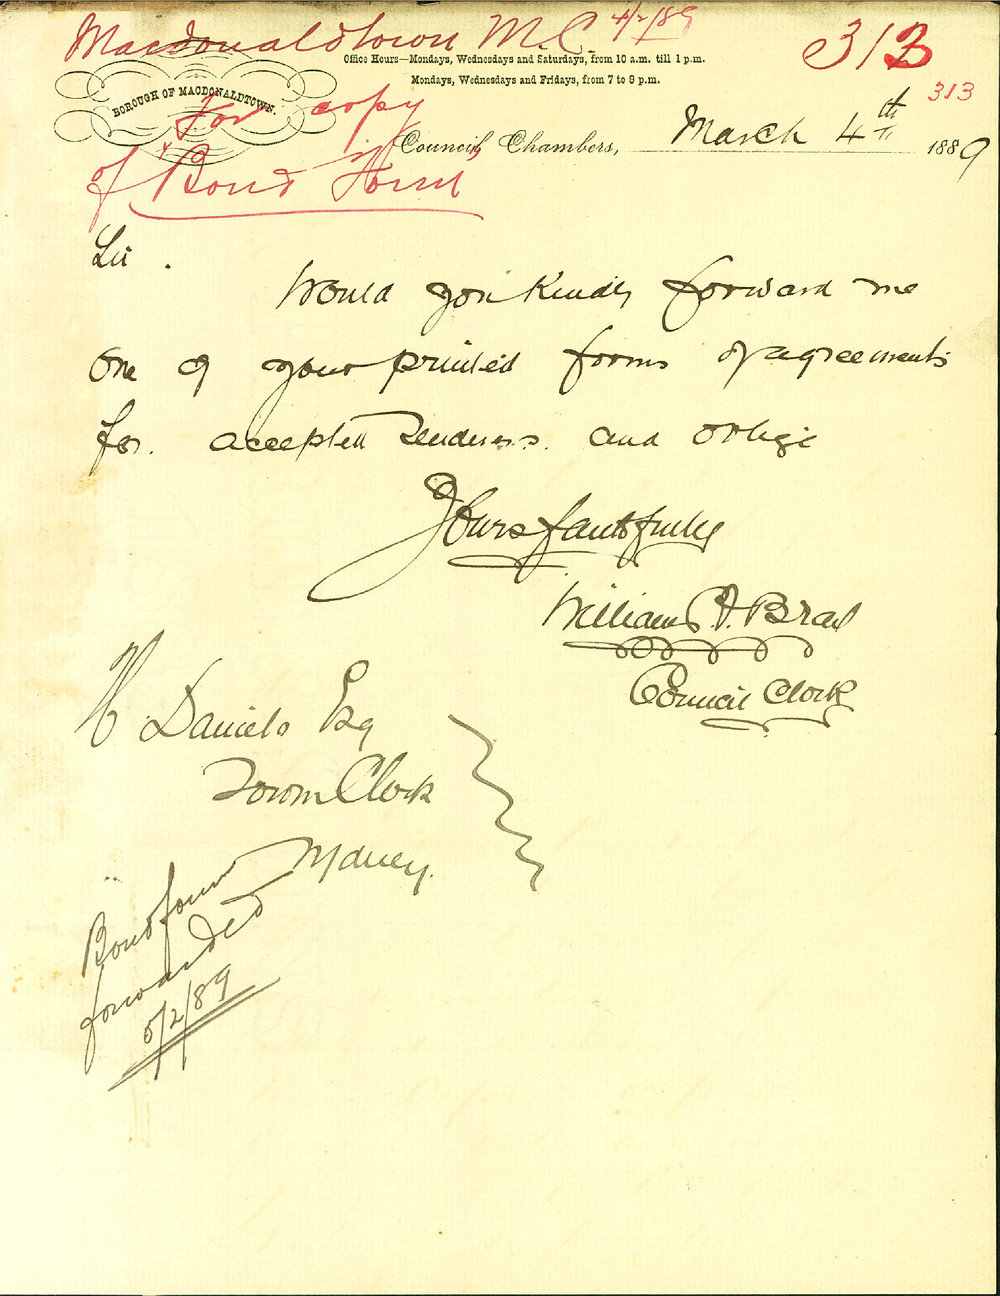 Macdonaldtown M.C. 4/2/89
313
313
Office Hours—Mondays, Wednesdays and Saturdays, from 10 a.m. till 1 p.m.
Mondays, Wednesdays and Fridays, from 7 to 9 p.m.
BOROUGH OF MACDONALDTOWN.
For copy
of Bond Form
Council Chambers, March 4th 1889
Sir.
Would you kindly forward me
one of your printed forms of agreements
for accepted Tenders. and oblige
Yours faithfully
William
Council Clerk
H Daniels Esq
Town Clerk
Bond form
forwarded
5/2/89